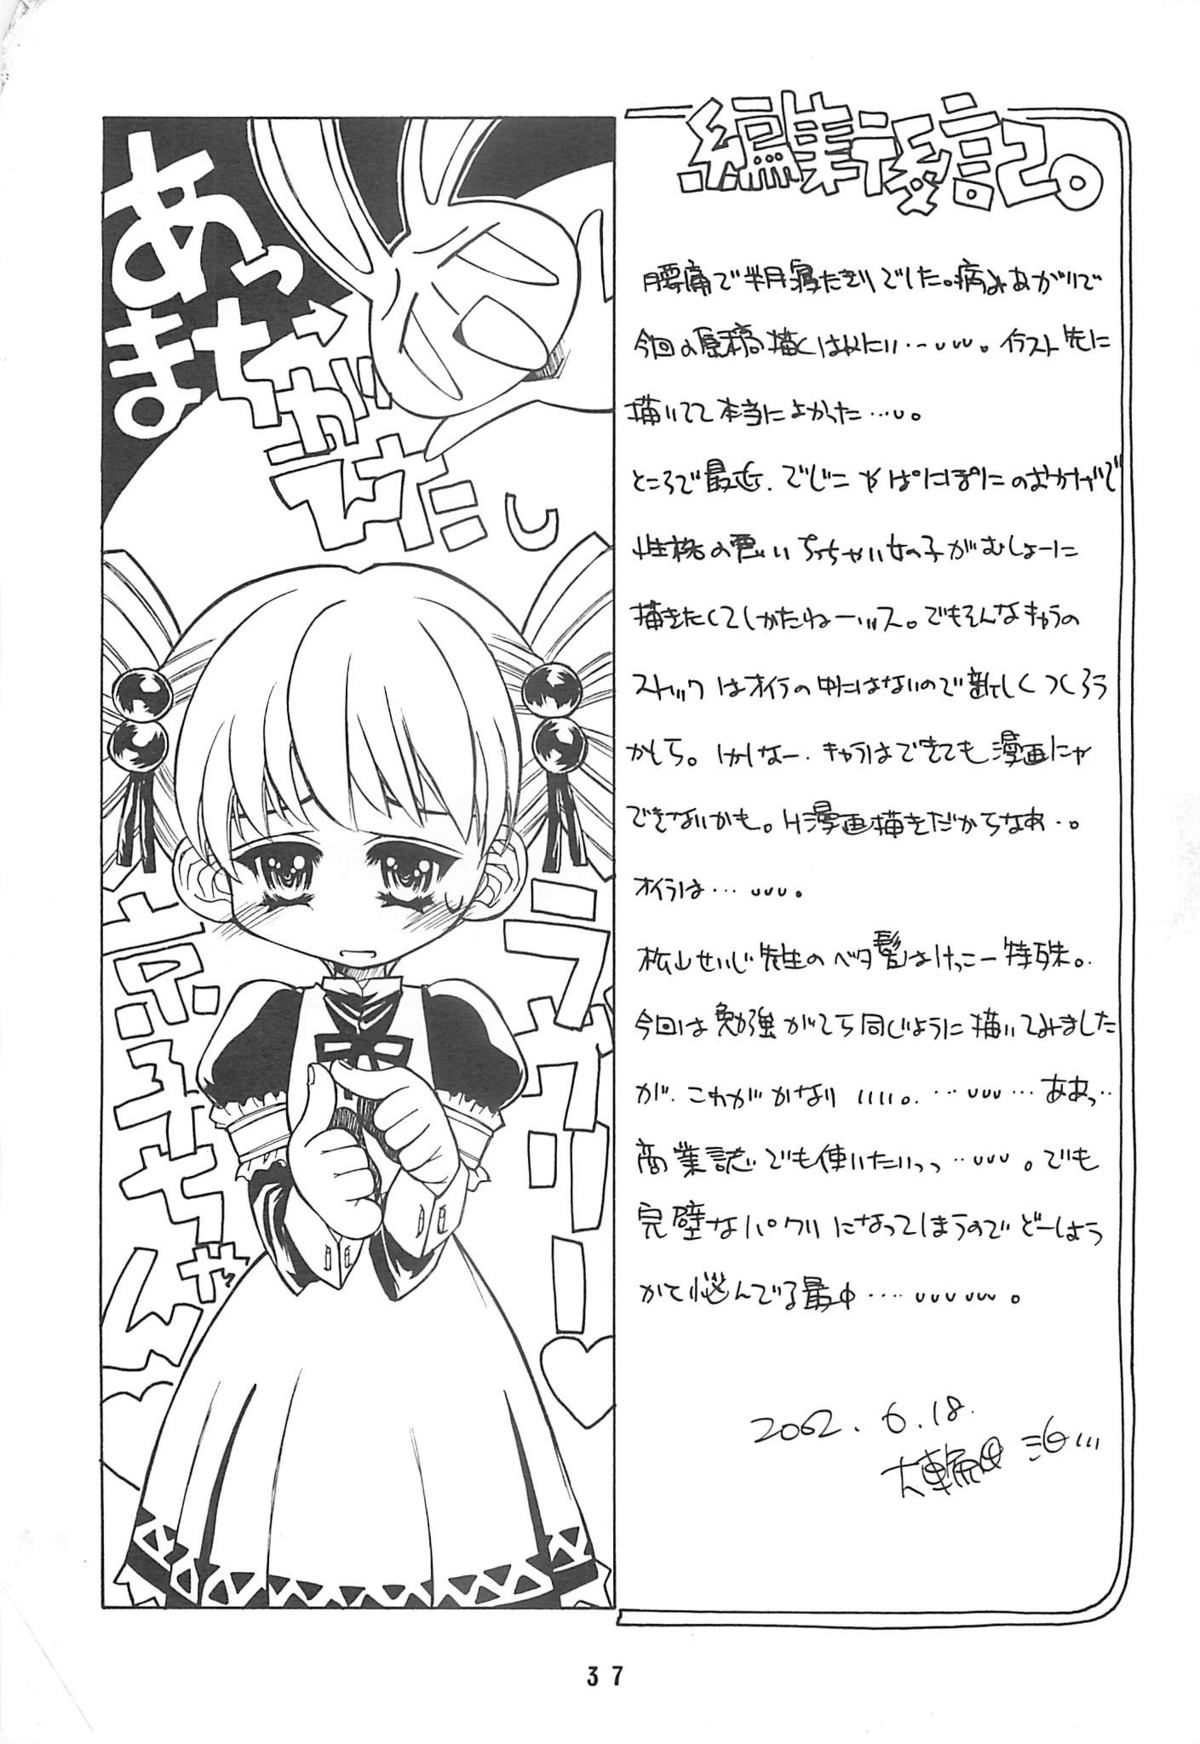 編集後記。
腰痛で半月寝たきりでした。病みあがりで
今回の原稿描くはめに……。イラスト先に
描いてて本当によかった…。
ところで最近、でじこやぱにぽにのおかげで
性格の悪いちっちゃい女の子がむしょーに
描きたくてしかたねーッス。でもそんなキャラの
ストックはオイラの中にはないので新しくつくろう
かしら。しかしなー、キャラはできても漫画にゃ
できないかも。H漫画描きだからなあ…。
オイラは……。
松山せいじ先生のベタ髪はけっこー特殊。
今回は勉強がてら同じように描いてみました
が、これがかなりいいい。………ああっ…
商業誌でも使いたいっっ……。でも
完璧なパクリになってしまうのでどーしよう
かと悩んでる最中………。
2002.6.18.
あっ
まちがえ
た
ラブリー
京子ちゃん
37